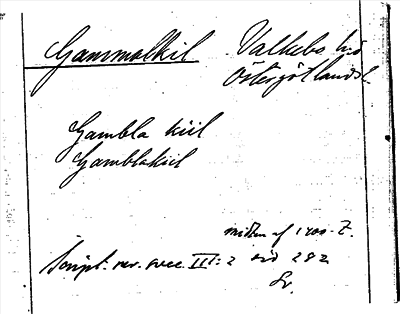 Gammalkil Valkebo hd
Östergötlands l.
Gambla kiil
Gamblakiil
midten af 1700-t.
Script. rer. svec. III:2 sid 282
Sv.